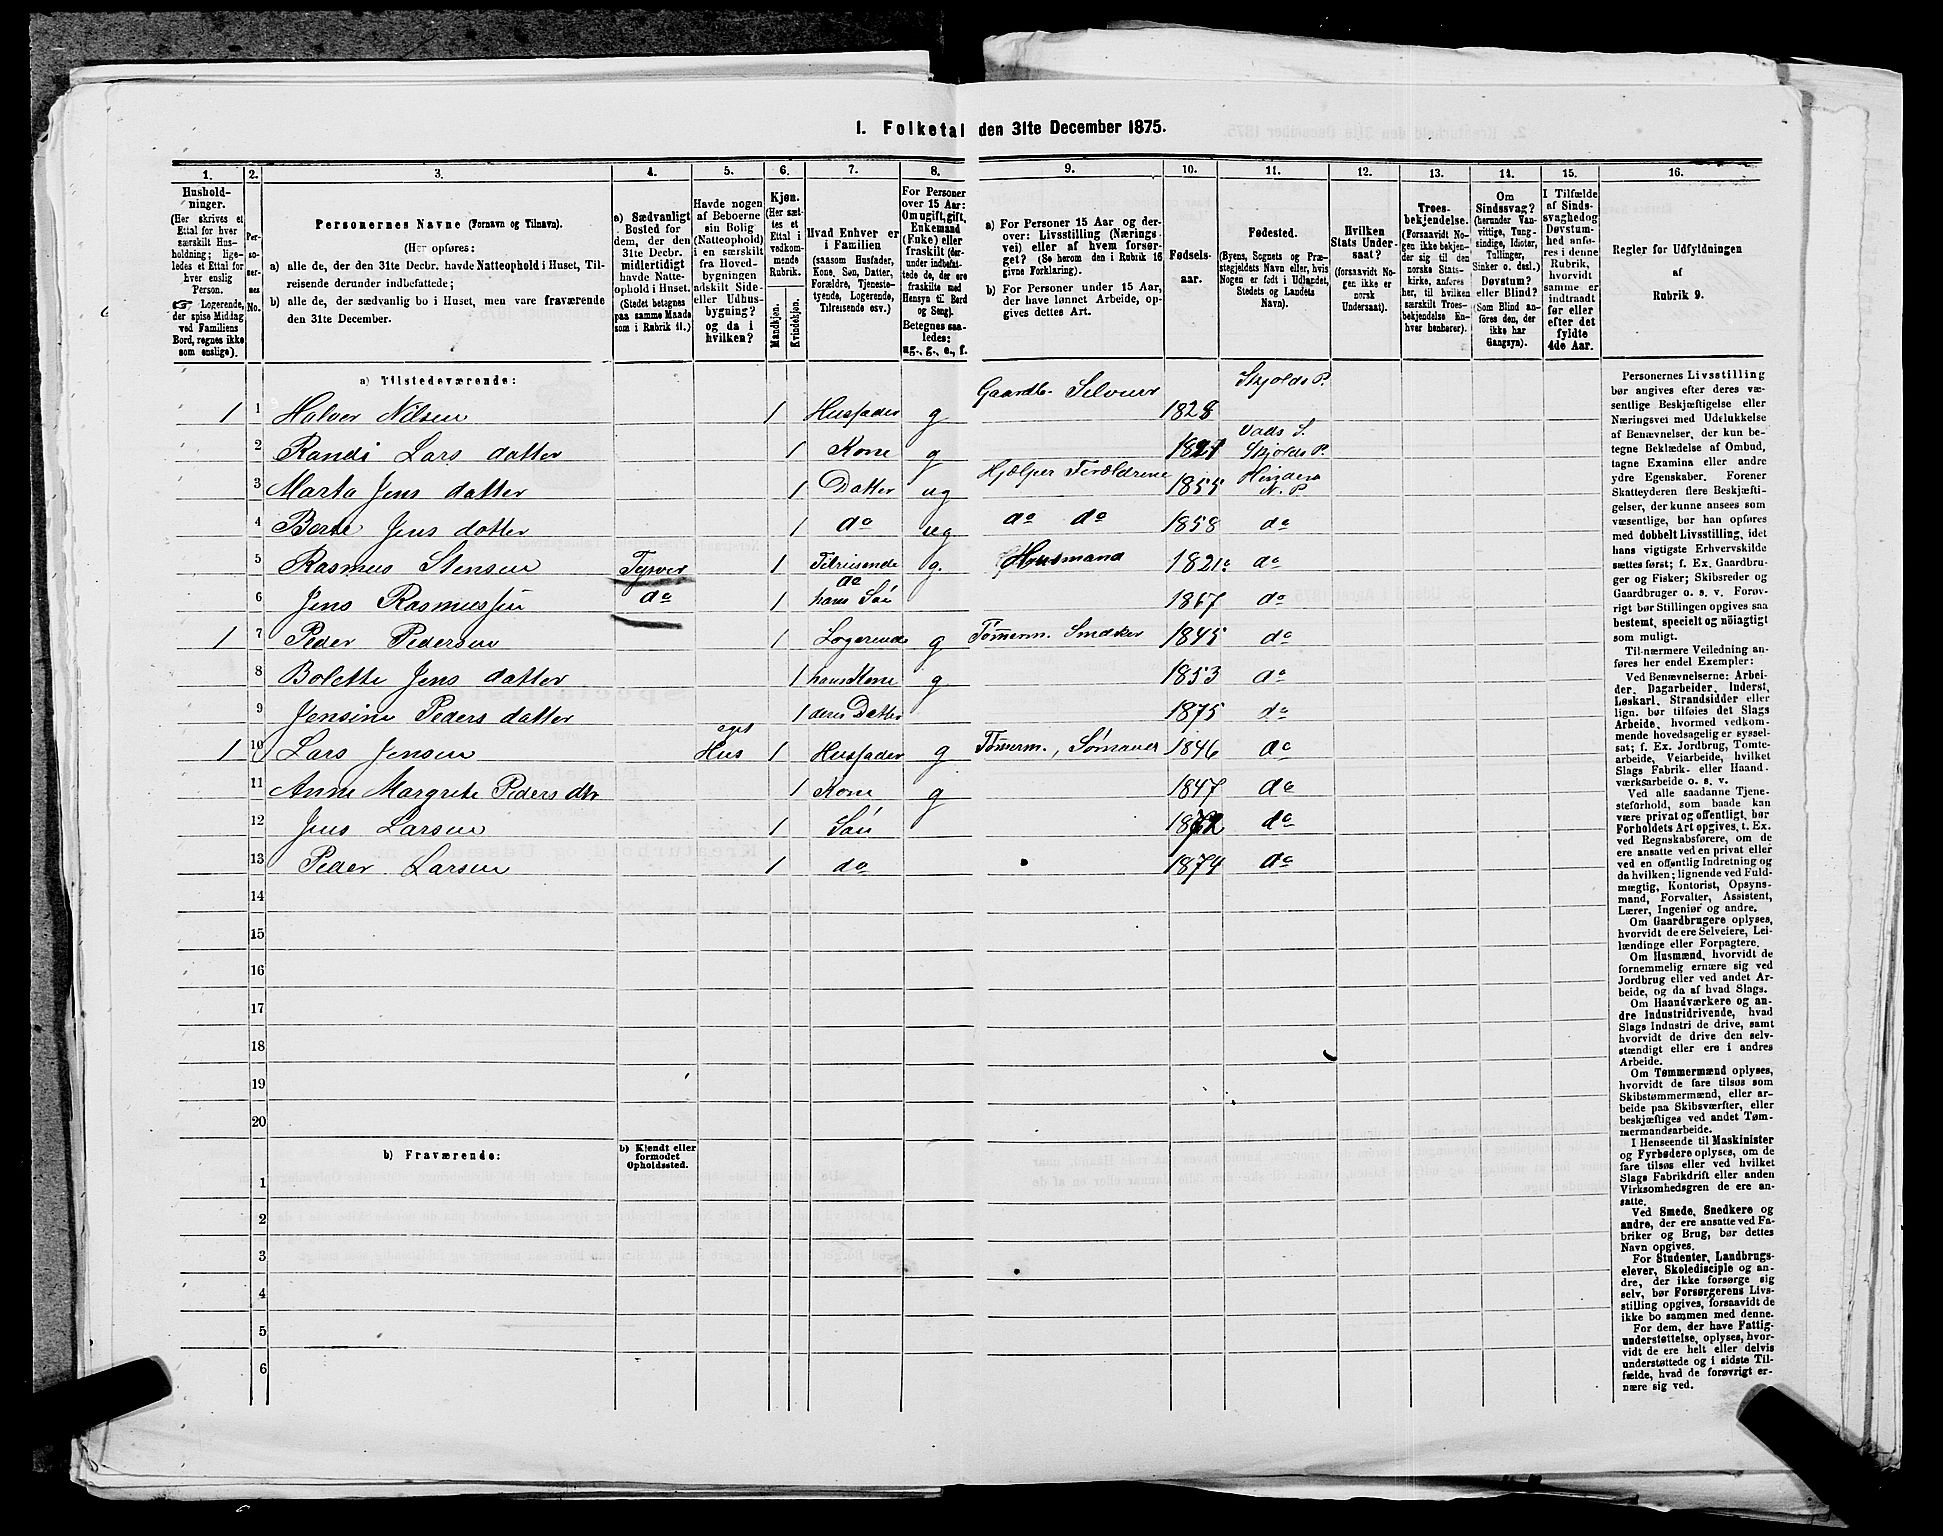 I. Folketal den 31te December 1875.
1. 2. 3. 4. 5. 6. 7. 8. 9. 10. 11. 12. 13. 14. 15. 16.
Hushold-
ninger.
(Her skrives et
Ettal for hver
særskilt Hus-
holdning; lige-
ledes et Ettal for
hver enslig
Person.
☞ Logerende,
der spise Middag
ved Familiens
Bord, regnes ikke
som enslige).
Per-
soner-
nes
No.
Personernes Navne (Fornavn og Tilnavn).
(Her opføres:
a) alle de, der den 31te Decbr. havde Natteophold i Huset, Til-
reisende derunder indbefattede;
b) alle de, der sædvanlig bo i Huset, men vare fraværende
den 31te December.
a) Sædvanligt
Bosted for
dem, der den
31te Decbr.
midlertidigt
havde Natte-
ophold i Huset.
(Stedet betegnes
paa samme Maade
som i Rubrik 11.)
Havde nogen
af Beboerne
sin Bolig
(Natteophold)
i en særskilt
fra Hoved-
bygningen
adskilt Side-
eller Udhus-
bygning?
og da i
hvilken?
Kjøn.
(Her sæt-
tes et
Ettal i
vedkom-
mende
Rubrik.
Mandkjøn.
Kvindekjøn.
Hvad Enhver er
i Familien
(saasom Husfader,
Kone, Søn, Datter,
Forældre, Tjeneste-
tyende, Logerende,
Tilreisende osv.)
For Personer
over 15 Aar:
Om ugift, gift,
Enkemand
(Enke) eller
fraskilt (der-
under indbefat-
tede de, der ere
fraskilte med
Hensyn til Bord
og Seng).
Betegnes saa-
ledes:
ug., g., e., f.
a) For Personer 15 Aar og der-
over: Livsstilling (Nærings-
vei) eller af hvem forsør-
get? (Se herom den i Rubrik 16
givne Forklaring).
b) For Personer under 15 Aar,
der have lønnet Arbeide, op-
gives dettes Art.
Fødsels-
aar.
Fødested.
(Byens, Sognets og Præ-
stegjeldets Navn eller, hvis
Nogen er født i Udlandet,
Stedets og Landets
Navn).
Hvilken
Stats Under-
saat?
(forsaavidt No-
gen ikke er
norsk
Undersaat).
Troes-
bekjendelse.
(Forsaavidt No-
gen ikke bekjen-
der sig til den
norske Stats-
kirke, anføres
her, til hvilken
særskilt Troes-
bekjendelse En-
hver henhører).
Om
Sindssvag?
(herunder Van-
vittige, Tung-
sindige, Idioter,
Tullinger,
Sinker o. desl.)
Døvstum?
eller Blind?
(Som Blind an-
føres den, der
ikke har
Gangsyn).
I Tilfælde
af Sinds-
svaghed og
Døvstum-
hed anfø-
res i denne
Rubrik,
hvorvidt
samme er
indtraadt
før eller
efter det
fyldte
4de Aar.
Regler for Udfyldningen
af
Rubrik 9.
a) Tilstedeværende:
1 1 Halver Nilsen 1 Husfader g Gaardb. Selveier 1828 Skjolds P.
2 Randi Lars datter 1 Kone g 1821 Vads S. Skjolds P.
3 Marta Jens datter 1 Datter ug Hjælper Foreldrene 1855 Hinderø N. P
4 Berte Jens datter 1 do ug do do 1858 do
5 Rasmus Stensen Tysver 1 Tilreisende g. Husmand 1821 do
6 Jens Rasmussen do 1 do hans Søn 1867 do
1 7 Peder Pedersen 1 Logerende g Tømerm. Snedker 1845 do
8 Bolette Jens datter 1 hans Kone g 1853 do
9 Jensine Peders datter 1 deres Datter 1875 do
1 10 Lars Jensen eget Hus 1 Husfader g Tømerm., Sømand 1846 do
11 Anne Margrete Peders dtr 1 Kone g 1847 do
12 Jens Larsen 1 Søn 1872 do
13 Peder Larsen 1 do 1874 do
14
15
16
17
18
19
20
b) Fraværende:
b) Kjendt eller
formodet
Opholdssted.
1
2
3
4
5
6
Personernes Livsstilling
bør angives efter deres væ-
sentlige Beskjæftigelse eller
Næringsvei med Udelukkelse
af Benævnelser, der kun be-
tegne Beklædelse af Ombud,
tagne Examina eller andre
ydre Egenskaber. Forener
Skatteyderen flere Beskjæfti-
gelser, der kunne ansees som
væsentlige, bør han opføres
med dobbelt Livsstilling, idet
hans vigtigste Erhvervskilde
sættes først; f. Ex. Gaardbru-
ger og Fisker; Skibsreder og
Gaardbruger o. s. v. Forøv-
rigt bør Stillingen opgives saa
bestemt, specielt og nöiagtigt
som muligt.
Til nærmere Veiledning an-
føres her endel Exempler:
Ved Benævnelserne: Arbei-
der, Dagarbeider, Inderst,
Løskarl, Strandsidder eller
lign. bør tilføies det Slags
Arbeide, hvormed vedkom-
mende hovedsagelig er syssel-
sat; f. Ex. Jordbrug, Tomte-
arbeide, Veiarbeide, hvilket
Slags Fabrik- eller Haand-
værksarbeide o. s. v.
Ved alle saadanne Tjene-
steforhold, som baade kan
være privat og offentligt, bør
Forholdets Art opgives, t. Ex.
ved Regnskabsførere, om de
ere ansatte ved en privat eller
ved en offentlig Indretning og
da hvilken; lignende ved Fuld-
mægtig, Kontorist, Opsyns-
mand, Forvalter, Assistent,
Lærer, Ingeniør og andre.
Om Gaardbrugere oplyses,
hvorvidt de ere Selveiere, Lei-
lændinge eller Forpagtere.
Om Husmænd, hvorvidt de
fornemmelig ernære sig ved
Jordbrug eller ved andet Ar-
beide, og da af hvad Slags.
Om Haandværkere og an-
dre Industridrivende, hvad
Slags Industri de drive, samt
hvorvidt de drive den selv-
stændigt eller ere i andres
Arbeide.
Om Tømmermænd oplyses,
hvorvidt de fare tilsøs som
Skibstømmermænd, eller ar-
beide paa Skibsværfter, eller
beskjæftiges ved andet Tøm-
mermandsarbeide.
I Henseende til Maskinister
og Fyrbødere oplyses, om de
fare tilsøs eller ved hvilket
Slags Fabrikdrift eller anden
Virksomhedsgren de ere an-
satte.
Ved Smede, Snedkere og
andre, der ere ansatte ved Fa-
briker og Brug, bør dettes
Navn opgives.
For Studenter, Landbrugs-
elever, Skoledisciple og an-
dre, der ikke forsørge sig
selv, bør Forsørgerens Livs-
stilling opgives, forsaavidt de
ikke bo sammen med denne.
For dem, der have Fattig-
understøttelse, oplyses, hvor-
vidt de ere helt eller delvis
understøttede og i sidste Til-
fælde, hvad de forøvrigt er-
nære sig ved.